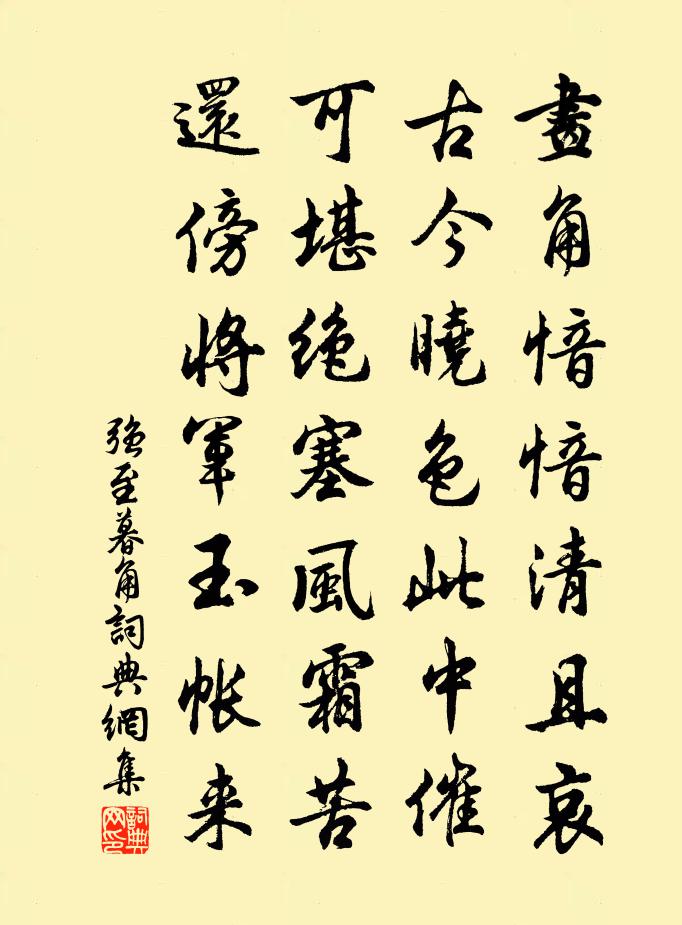 畫角愔愔清且哀
古今曉色此中催
可堪絶塞風霜苦
還傍將軍玉帳来
强至暮角詞典網集
詞典网印